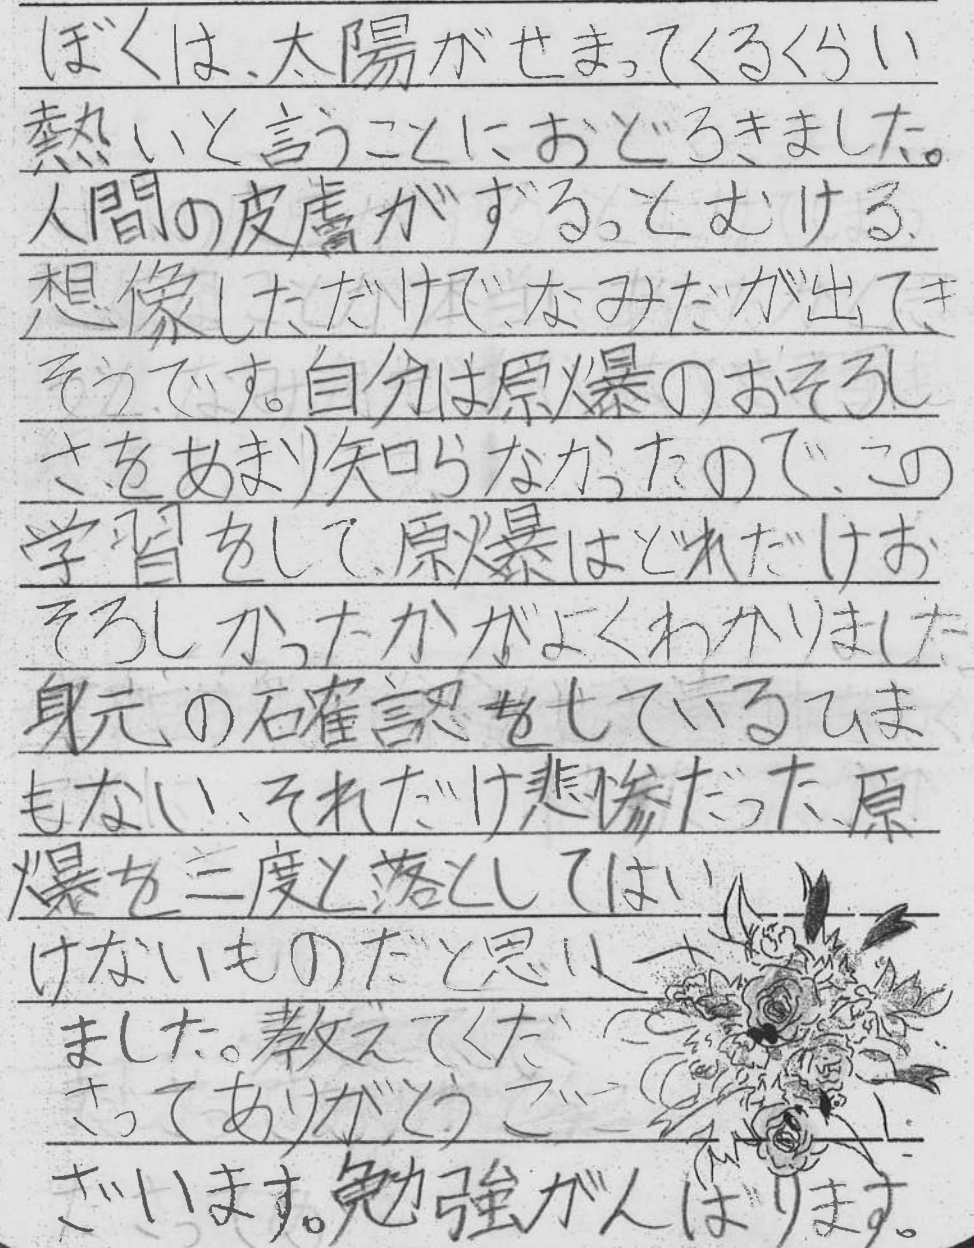 ぼくは、太陽がせまってくるくらい
熱いと言うことにおどろきました。
人間の皮膚がずるっとむける、
想像しただけで、なみだが出てき
そうです。自分は原爆のおそろし
さをあまり知らなかったので、この
学習をして、原爆はどれだけお
そろしかったかがよくわかりました
身元の確認をしているひま
もない、それだけ悲惨だった、原
爆を二度と落としてはい
けないものだと思い
ました。教えてくだ
さってありがとうご
ざいます。勉強がんばります。